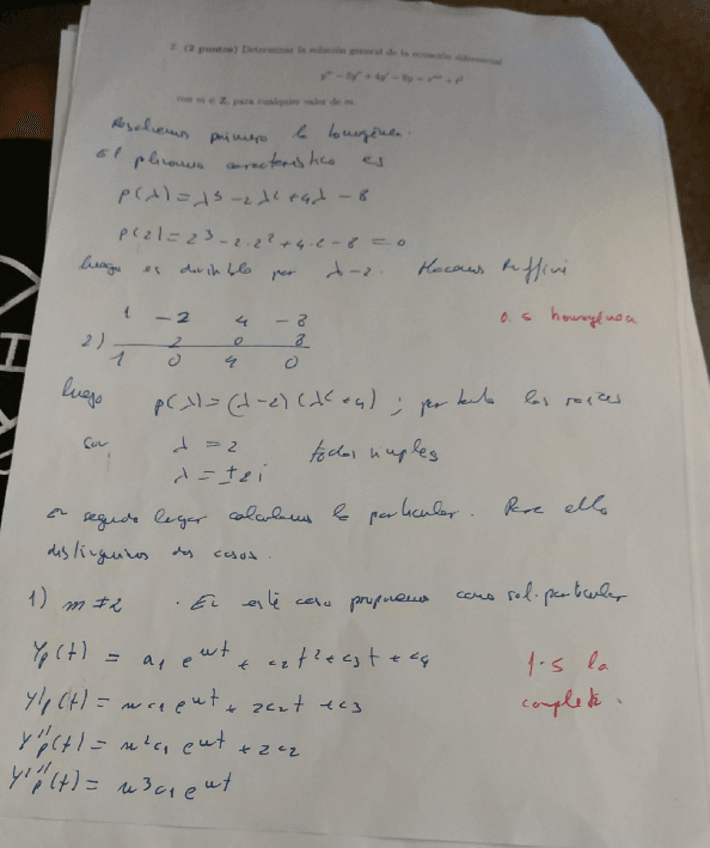 2. (2 puntos) Determinar la solución general de la ecuación diferencial
y''' − 2y'' + 4y' − 8y = e^{mt} + t²
con m ∈ Z, para cualquier valor de m
Resolvemos primero la homogénea.
El polinomio característico es
p(λ) = λ³ − 2λ² + 4λ − 8
p(2) = 2³ − 2·2² + 4·2 − 8 = 0
luego es divisible por λ−2. Hacemos Ruffini
1 −2 4 −8
0.5 homogénea
2) 2 0 8
1 0 4 0
luego p(λ) = (λ−2)(λ²+4) ; por tanto las raíces
son λ = 2 todas simples
λ = ±2i
En segundo lugar calculamos la particular. Para ello
distinguimos dos casos.
1) m ≠ 2 . En este caso proponemos como sol. particular
Yp(t) = a1 e^{mt} + c2t² + c3t + c4
1.5 la
Y'p(t) = m c1 e^{mt} + 2c2t + c3
completa.
Y''p(t) = m²c1 e^{mt} + 2c2
Y'''p(t) = m³c1 e^{mt}